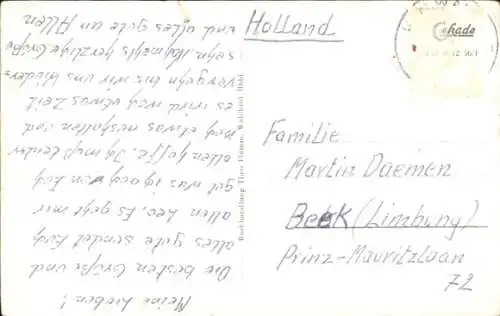 Meine Lieben!
Die besten Grüße und
alles gute sendet Euch
allen Leo. Es geht mir
gut was ich auch von Euch
allen hoffe. Ich muß leider
noch etwas aushalten und
es wird noch etwas Zeit
vergehn bis wir uns wieder-
sehn. Nochmals herzliche Grüße
und alles gute an Allen
Buchhandlung Theo
Holland
Familie
Martin Daemen
Beek (Limburg)
Prinz-Mauritzlaan
72